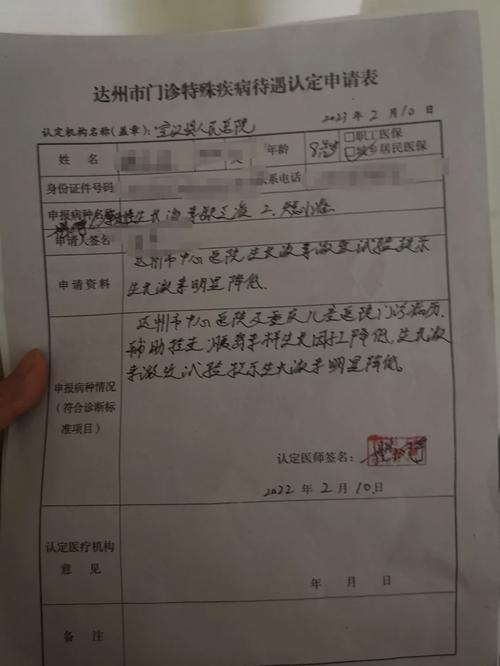 达州市门诊特殊疾病待遇认定申请表
认定机构名称(盖章): 宣汉县人民医院 2023年2月10日
姓名 年龄 8岁 □职工医保
□城乡居民医保
身份证件号码 系电话
申报病种名称 生长激素缺乏症 2.矮小症
申请人签名
申请资料 达州市中心医院生长激素激发试验提示
生长激素明显降低.
申报病种情况
(符合诊断标
准项目)
达州市中心医院及重庆儿童医院门诊病历.
辅助检查:胰岛素样生长因子降低,生长激
素激发试验提示生长激素明显降低.
认定医师签名:
2022年2月10日
认定医疗机构
意见
年 月 日
备注